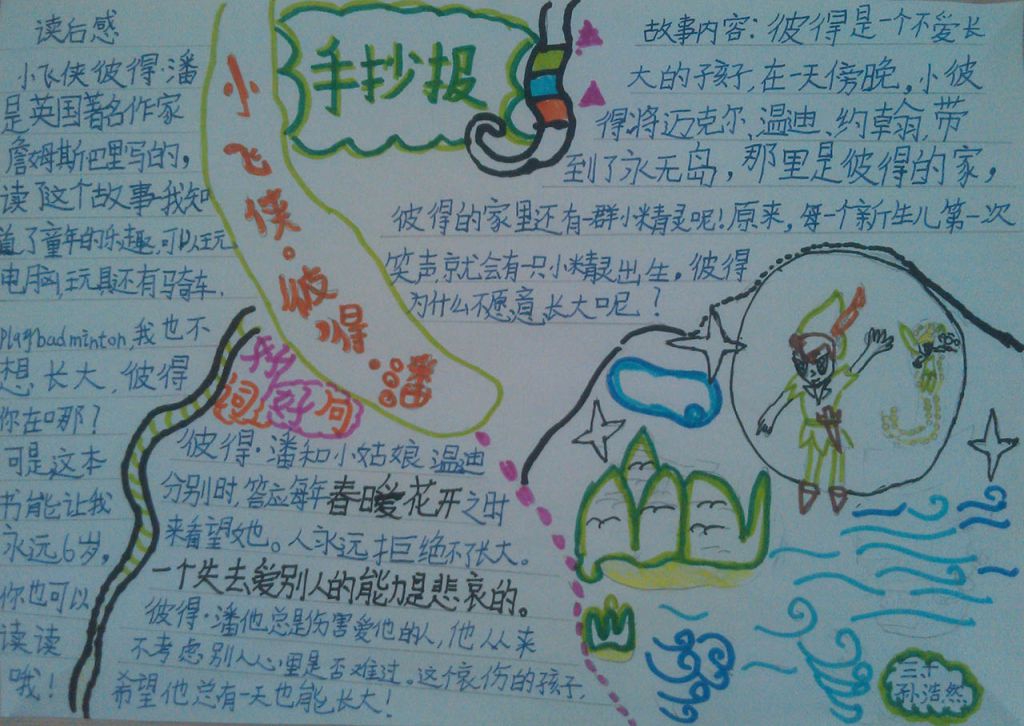 手抄报
小飞侠。彼得·潘
读后感
小飞侠彼得·潘
是英国著名作家
詹姆斯巴里写的，
读了这个故事我知
道了童年的乐趣，可以玩
电脑，玩具还有马奇车，
play badminton，我也不
想长大，彼得
你在哪？
可是这本
书能让我
永远6岁，
你也可以
读读
哦！
故事内容：彼得是一个不爱长
大的孩子，在一天傍晚，小彼
得将迈克尔、温迪、约翰，带
到了永无岛，那里是彼得的家，
彼得的家里还有一群小精灵呢！原来，每一个新生儿第一次
笑声，就会有一只小精灵出生。彼得
为什么不愿意长大呢？
好词好句
彼得·潘和小姑娘温迪
分别时，答应每年春日爱花开之时
来看望她。人永远拒绝不了长大。
一个失去爱别人的能力是悲哀的。
彼得·潘他总是伤害爱他的人，他从来
不考虑别人心里是否难过。这个哀伤的孩子，
希望他总有一天也能长大！
孙浩然